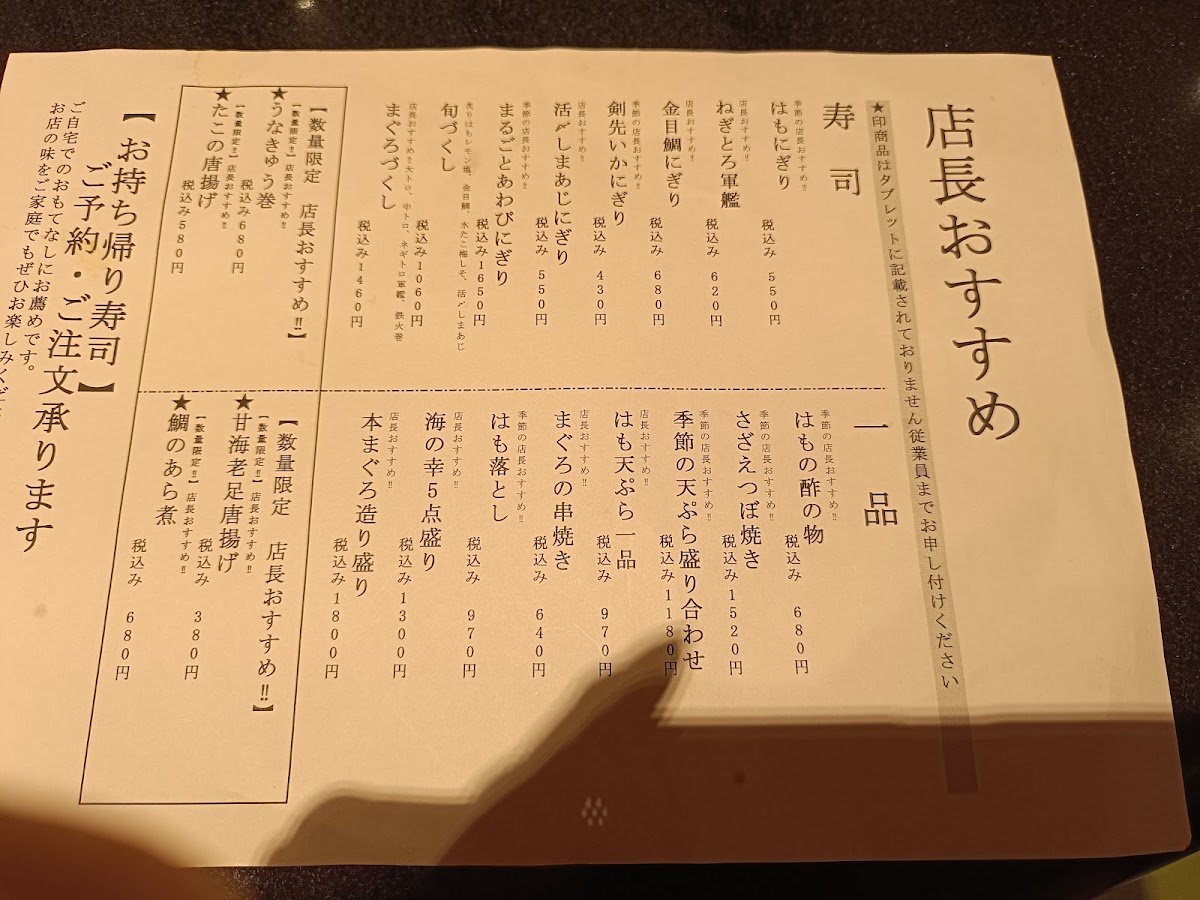 店長おすすめ
★印商品はタブレットに記載されておりません従業員までお申し付けください
寿司
季節の店長おすすめ!!
はもにぎり
税込み 550円
店長おすすめ!!
ねぎとろ軍艦
税込み 620円
店長おすすめ!!
金目鯛にぎり
税込み 680円
季節の店長おすすめ!!
剣先いかにぎり
税込み 430円
店長おすすめ!!
活〆しまあじにぎり
税込み 550円
季節の店長おすすめ!!
まるごとあわびにぎり
税込み1650円
炙りはもレモン塩、金目鯛、水たこ梅しそ、活〆しまあじ
旬づくし
税込み1060円
店長おすすめ!!大トロ、中トロ、ネギトロ軍艦、鉄火巻
まぐろづくし
税込み1460円
【数量限定 店長おすすめ!!】
【数量限定!!】店長おすすめ!!
★うなきゅう巻
税込み680円
【数量限定!!】店長おすすめ!!
★たこの唐揚げ
税込み580円
一品
季節の店長おすすめ!!
はもの酢の物
税込み 680円
季節の店長おすすめ!!
さざえつぼ焼き
税込み1520円
季節の店長おすすめ!!
季節の天ぷら盛り合わせ
税込み1180円
店長おすすめ!!
はも天ぷら一品
税込み 970円
店長おすすめ!!
まぐろの串焼き
税込み 640円
季節の店長おすすめ!!
はも落とし
税込み 970円
店長おすすめ!!
海の幸5点盛り
税込み1300円
店長おすすめ!!
本まぐろ造り盛り
税込み1800円
【数量限定 店長おすすめ!!】
【数量限定!!】店長おすすめ!!
★甘海老足唐揚げ
税込み 380円
【数量限定!!】店長おすすめ!!
★鯛のあら煮
税込み 680円
【お持ち帰り寿司】
ご予約・ご注文承ります
ご自宅でのおもてなしにお薦めです。
お店の味をご家庭でもぜひお楽しみくだ